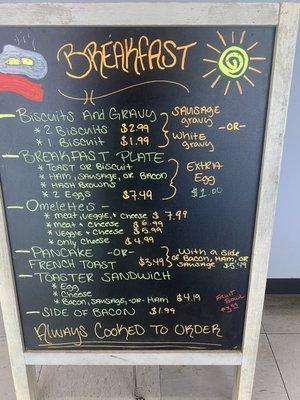 Breakfast
Biscuits and Gravy
* 2 Biscuits $2.99
* 1 Biscuit $1.99
Sausage gravy
-or-
White gravy
Breakfast Plate
* Toast or Biscuit
* Ham, Sausage, or Bacon
* Hash Browns
* 2 Eggs $7.49
Extra Egg
$1.00
Omelettes -
* meat, veggie, + cheese $7.99
* meat + cheese $6.99
* veggie + cheese $5.99
* only cheese $4.99
Pancake -or-
French Toast $3.49
With a side of Bacon, Ham, or Sausage $5.49
Toaster Sandwich
* Egg
* Cheese
* Bacon, Sausage, or Ham $4.19
Side of Bacon $1.99
Fruit Bowl
$3.99
Always Cooked to Order